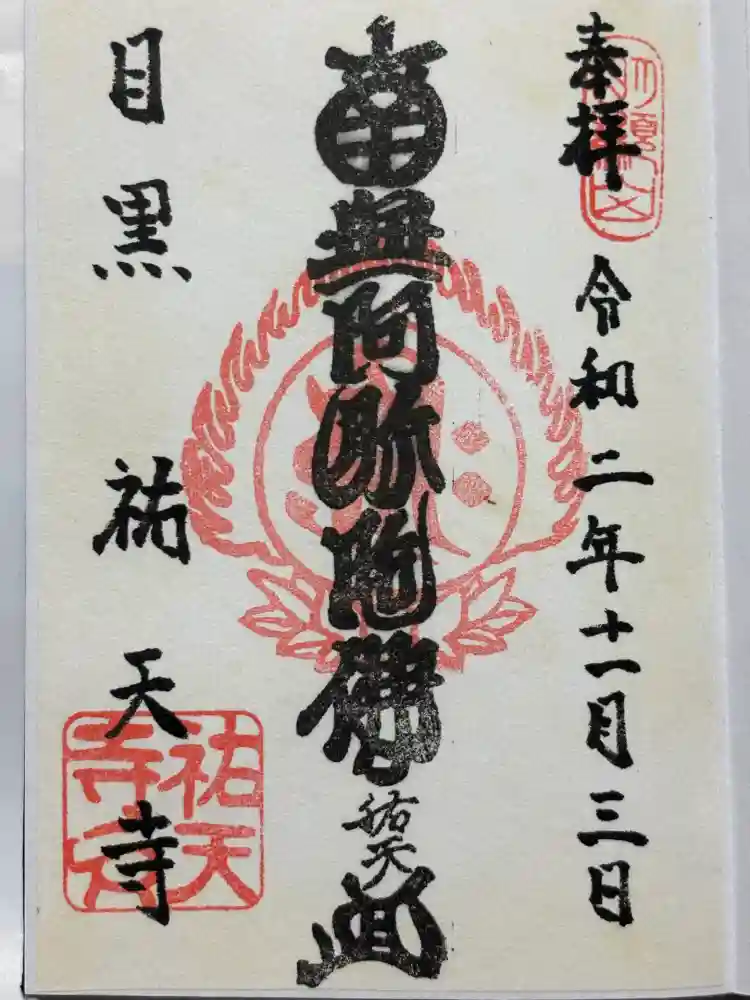 奉拝
令和二年十一月三日
南無阿弥陀佛
祐天
目黒 祐天寺
祐天
寺